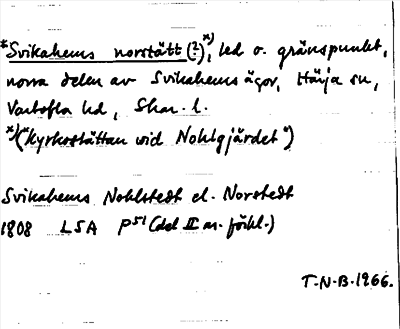 *Svikahems norstätt (?)*), led o. gränspunkt,
norra delen av Svikahems ägor, Härja sn,
Vartofta hd, Skar. l.
*) ("Kyrkostättan wid Nohlgjärdet")
Svikahems Nohlstedt el. Norstedt
1808 LSA P51 (del II av. förkl.)
T.N.B. 1966.